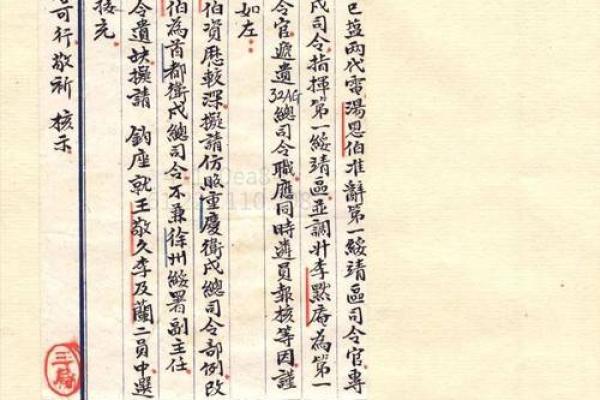 巳藍兩代電湯恩伯准辭第一綏靖區司令官專
戍司令指揮第一綏靖區並調升李默庵為第一
令官遞遺32AG總司令職應同時遴員報核等因謹
如左
伯資歷較深擬請仿照重慶衛戍總司令部例改
伯為首都衛戍總司令不兼徐州綏署副主任
令遺缺擬請 鈞座就王敬久李及蘭二員中選
接充
可行敬祈 核示